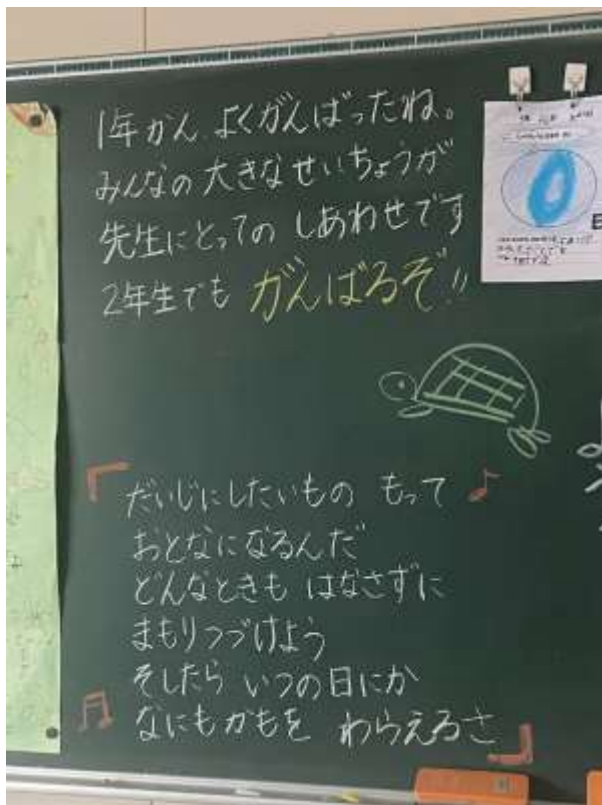 1年かん よくがんばったね。
みんなの 大きなせいちょうが
先生にとっての しあわせです
2年生でも がんばるぞ!!
「だいじにしたいもの もって♪
おとなになるんだ
どんなときも はなさずに
まもりつづけよう
そしたら いつの日にか
なにもかもを わらえるさ」